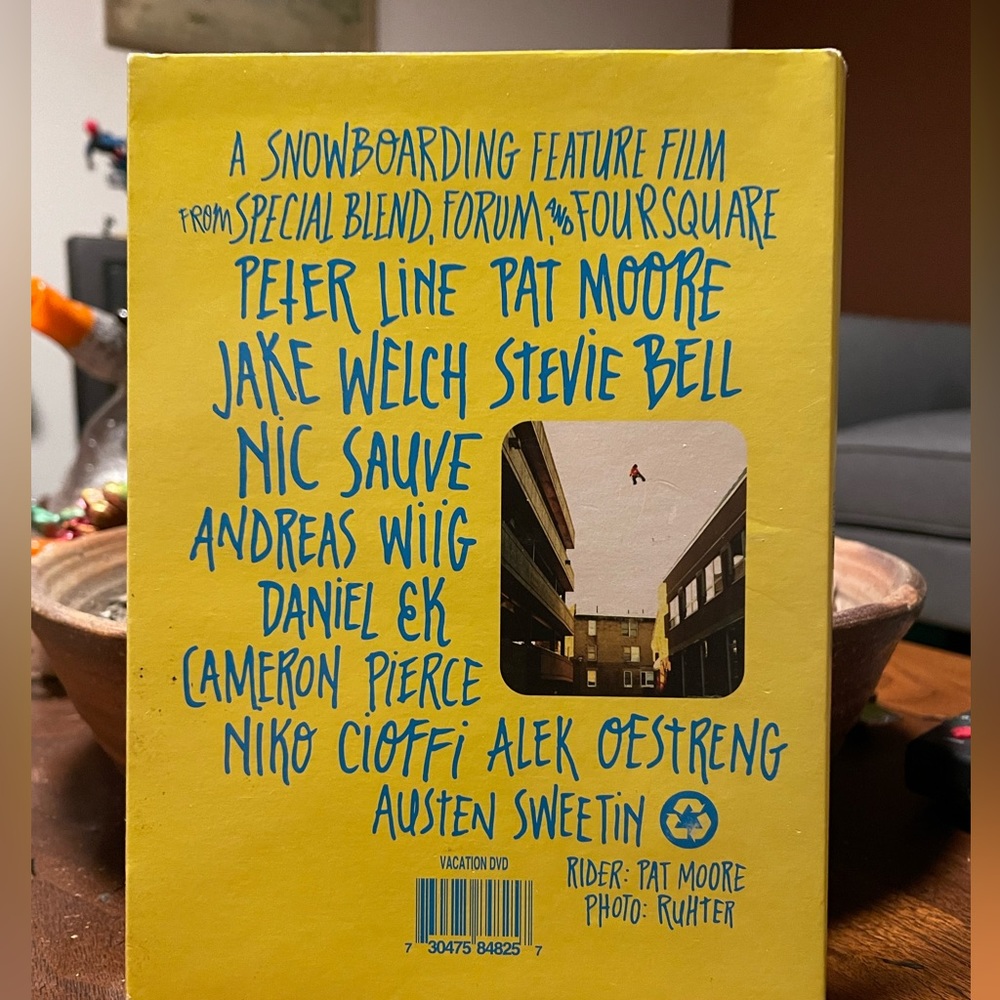 A SNOWBOARDING FEATURE FILM
FROM SPECIAL BLEND, FORUM, AND FOURSQUARE
PETER LINE PAT MOORE
JAKE WELCH STEVIE BELL
NIC SAUVE
ANDREAS WIIG
DANIEL EK
CAMERON PIERCE
NIKO CIOFFI ALEK OESTRENG
AUSTEN SWEETIN
VACATION DVD
RIDER: PAT MOORE
PHOTO: RUHTER
7 30475 84825 7